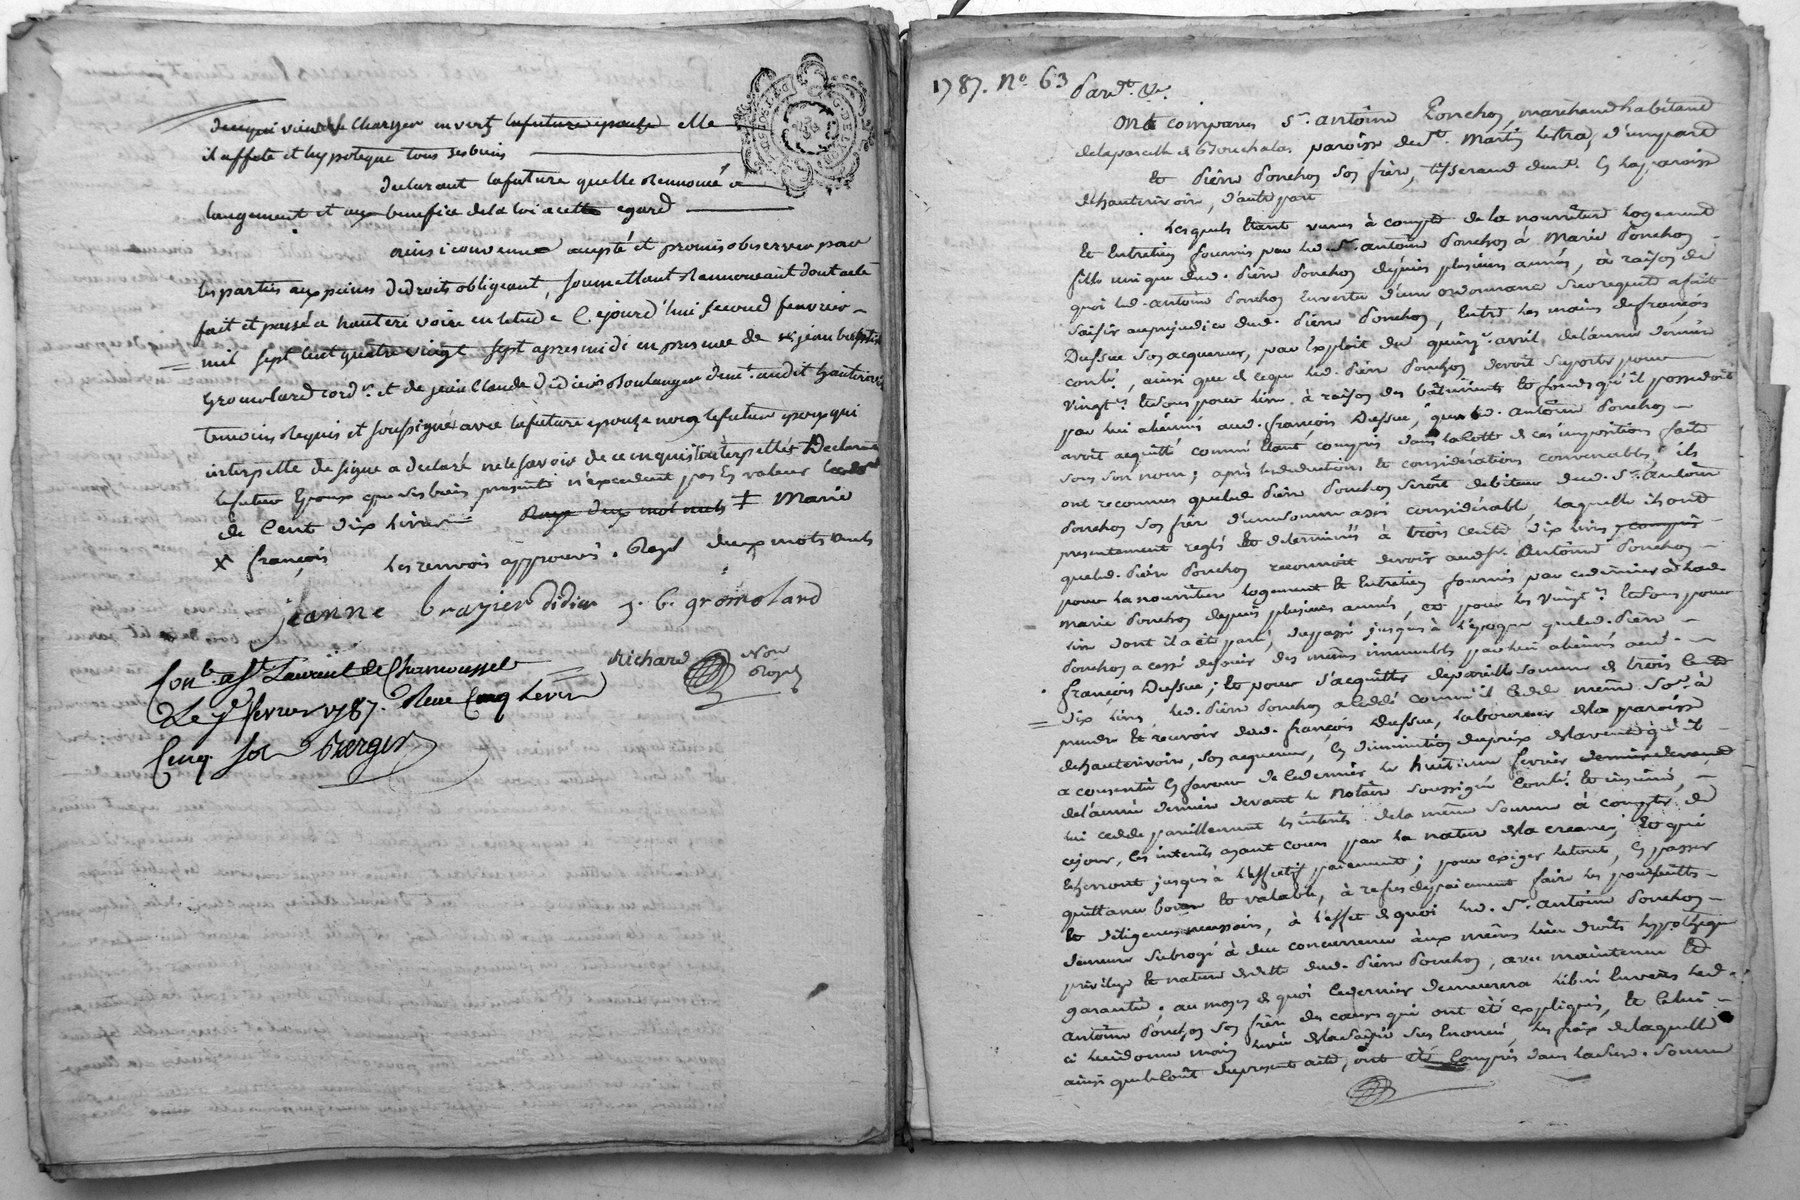 de ce qui vient de Charger envers la future epouse elle
il affete et hypoteque tous ses biens
declarant la future quelle Renonce a
langement et aux benefice de la loi a cette egard
ainsi convenu accepté et promis observer par
les parties aux peines de droits obligeant, soumettant Renonceant dont acte
fait et passé a hauterivoire en letude Cejourd'hui second fevrier
mil sept Cent quatre vingt sept apres midi en presence de sr jean baptiste
gromolard cord.r et de jean Claude Didier Boulanger dem.t audit hauterivoire
temoins Requis et soussignés avec la future epouze non le futur epoux qui
interpellé de signer a declaré ne le savoir de ce enquis interpellés Declarant
le futur Epoux que ses biens presents n'excendent pas la valeur
de Cent dix livres Rayé deux mot nuls ‡ Marie
x françois les renvois approuvés. Rayé deux mots nuls
jeanne brazier Didier j. b. gromolard
Richard Not Royal
Con.lé a St Laurent de Chamousset
Le 7e fevrier 1787. Reçu Cinq livres
Cinq sol Barger
1787. N.o 63
Pard.t &c.
Ont comparus S.r antoine Ponchon marchand habitant
de la parcelle de Bouchalas paroisse de St. Martin Lestra, d'une part
Et Pierre Ponchon son frère, tisserand dem.t En la paroisse
d'hauterivoire, d'autre part
Lesquels étant venus à compte de la nourriture logement
Et Entretien fournis par led. S.r antoine Ponchon à Marie Ponchon
fille unique dud. Pierre Ponchon depuis plusieurs années, à raison de
quoi led. antoine Ponchon En vertu d'une ordonnance sur requete a fait
saisir au prejudice dud. Pierre Ponchon, Entre les mains de françois
Dussue son acquereur, par Exploit du quinz.e avril de l'année derniere
conlé, ainsi que de ce que led. Pierre Ponchon devoit suporter pour
vingt.s Et sous pour livre, à raison des bâtiments Et fonds qu'il possedoit
par lui alienés aud. françois Dussue, que led. antoine Ponchon
avoit acquitté comme étant compris dans la cotte de ces impositions faite
sous son nom; après les deductions Et considérations convenables, ils
ont reconnus que led. Pierre Ponchon seroit debiteur dud. S.r antoine
Ponchon son frère d'une somme assés considérable, laquelle ils ont
presentement reglé Et determinés à trois cents dix livres, y compris
que led. Pierre Ponchon reconnoit devoir aud. Sr. Antoine Ponchon
pour la nourriture logement Et Entretien fournis par ce dernier à lad.
Marie Ponchon depuis plusieurs années, Et pour les vingt.s Et sous pour
livre dont il a été parlé, du passé jusqu'à l'époque que led. Pierre
Ponchon a cessé de jouir des mêmes immeubles par lui alienés aud.
françois Dussue; Et pour s'acquitter de pareille somme de trois cents
dix livres, led. Pierre Ponchon a cédé comme il cede même So.e à
prendre Et recevoir dud. françois Dussue, laboureur de la paroisse
d'hauterivoire, son acquereur, En diminution du prix de la vente qu'il
a consentie En faveur de ce dernier le huitieme fevrier
de l'année derniere devant le Notaire soussigné Conlé. Et insinué,
lui cede pareillement les interets de la même somme à compter de
cejour, les interets ayant cours par la nature de la creance, Et qui
Echerront jusqu'à l'effectif paiement; pour exiger le tout, En passer
quittance bonne Et valable, à refus de paiement faire les poursuites
Et diligences necessaires, à l'effet de quoi led. S.r antoine Ponchon
demeure subrogé à due concurrence aux mêmes lieu droits hypothèque
privilege Et nature de dette dud. Pierre Ponchon, avec maintenue Et
garantie. au moyen de quoi ce dernier demeurera libéré Envers led.
antoine Ponchon son frère des causes qui ont été expliqués, Et celui-
ci lui donne main levée de la saisie sus Enoncée, les frais de laquelle
ainsi que le coût du present acte, ont été Compris dans ladite. somme